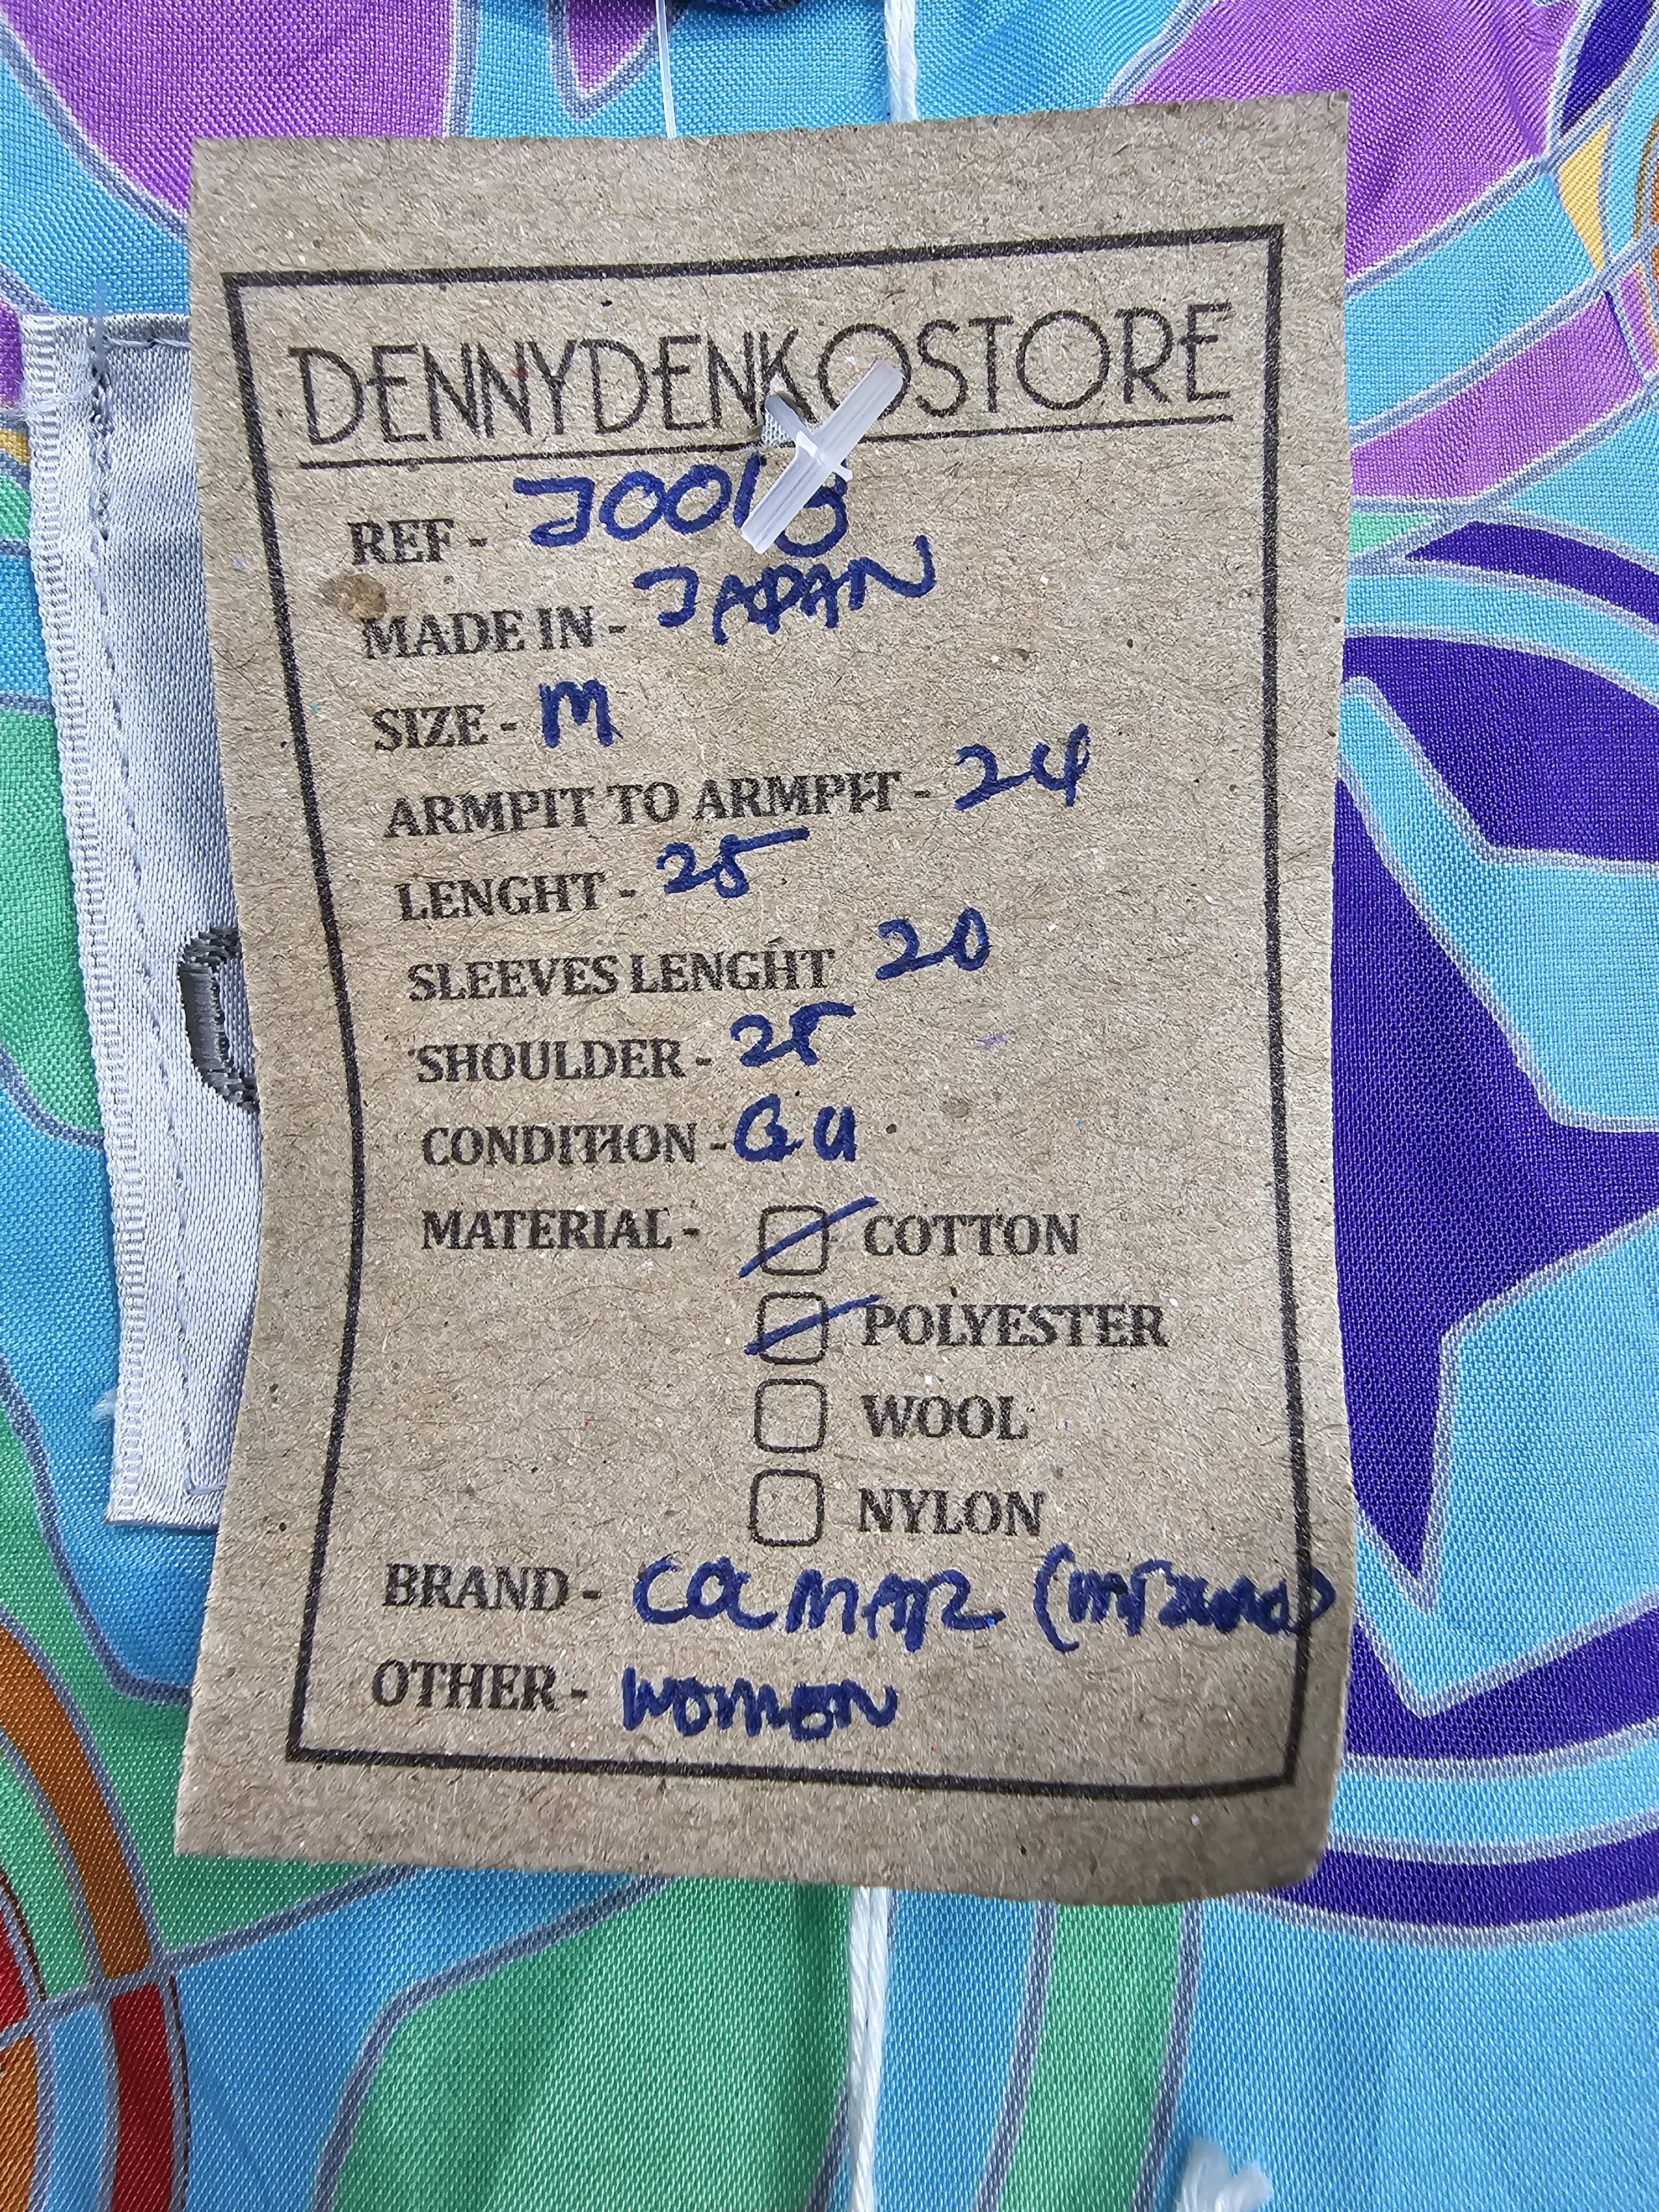 DENNYDENKOSTORE
REF -
MADE IN - JAPAN
SIZE - M
ARMPIT TO ARMPIT - 24
LENGHT - 25
SLEEVES LENGHT 20
SHOULDER - 25
CONDITION - GU
MATERIAL - COTTON
POLYESTER
WOOL
NYLON
BRAND - COLMAR (mizuno)
OTHER - WOMEN